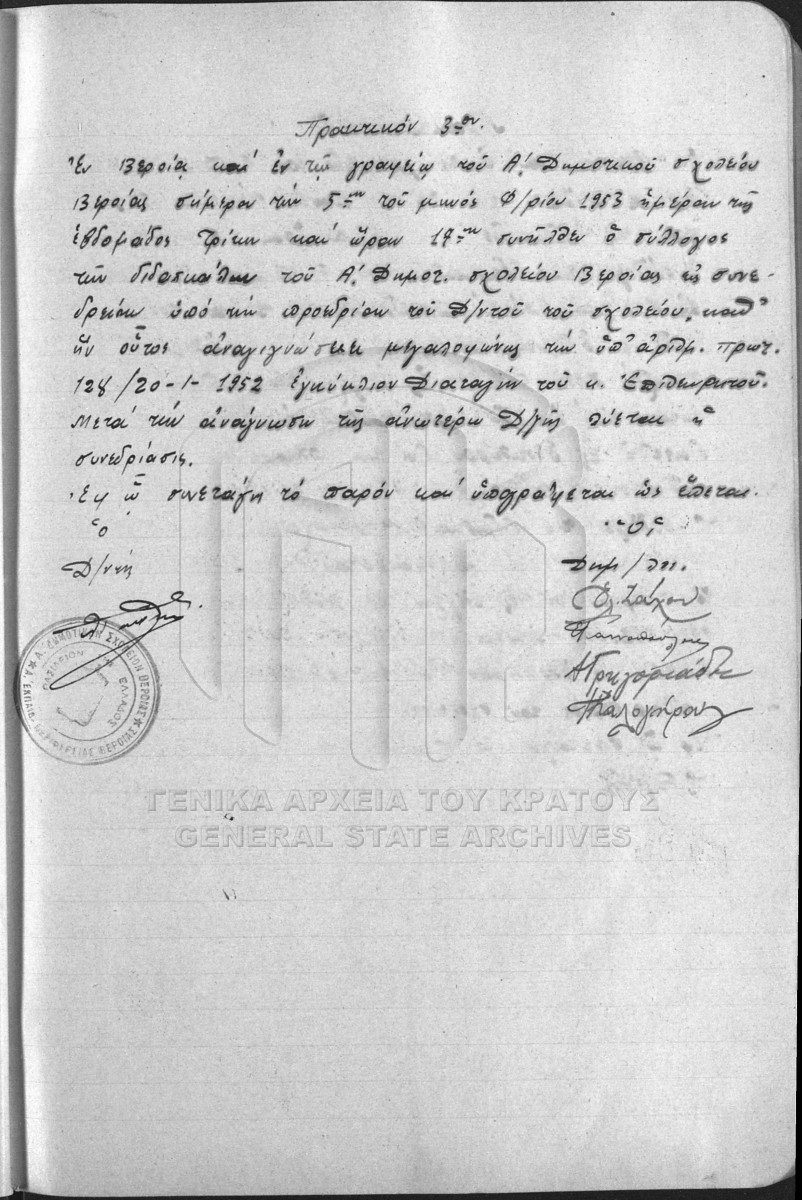 Πρακτικόν 3ον.
Ἐν Βεροίᾳ καί ἐν τῷ γραφείῳ τοῦ Α! Δημοτικοῦ σχολείου
Βεροίας σήμερον τήν 5ην τοῦ μηνός Φ/ρίου 1953 ἡμέραν τῆς
ἑβδομάδος Τρίτην καί ὥραν 17ην συνῆλθεν ὁ σύλλογος
τῶν διδασκάλων τοῦ Α! Δημοτ. σχολείου Βεροίας εἰς συνε-
δρείαν ὑπό τήν προεδρίαν τοῦ Δ/ντοῦ τοῦ σχολείου, καθ'
ἥν οὗτος ἀναγιγνώσκει μεγαλοφώνως τήν ὑπ' ἀριθμ. πρωτ.
128/20-1-1952 ἐγκύκλιον Διαταγήν τοῦ κ. Ἐπιθεωρητοῦ.
Μετά τήν ἀνάγνωσιν τῆς ἀνωτέρω Δ/γῆς λύεται ἡ
συνεδρίασις.
Ἐφ ᾧ συνετάγη τό παρόν καί ὑπογράφεται ὡς ἕπεται.
Ὁ
Οἱ
Δ/ντής
Δημ/λοι.
Ελ. Ζάχου
Παπαδοπούλου
ΑΓρηγοριάδης
Καλογήρου
Α. ΔΗΜΟΤΙΚΟΝ ΣΧΟΛΕΙΟΝ ΒΕΡΟΙΑΣ
ΒΑΣΙΛΕΙΟΝ ΕΛΛΑΔΟΣ
ΓΕΝΙΚΑ ΑΡΧΕΙΑ ΤΟΥ ΚΡΑΤΟΥΣ
GENERAL STATE ARCHIVES